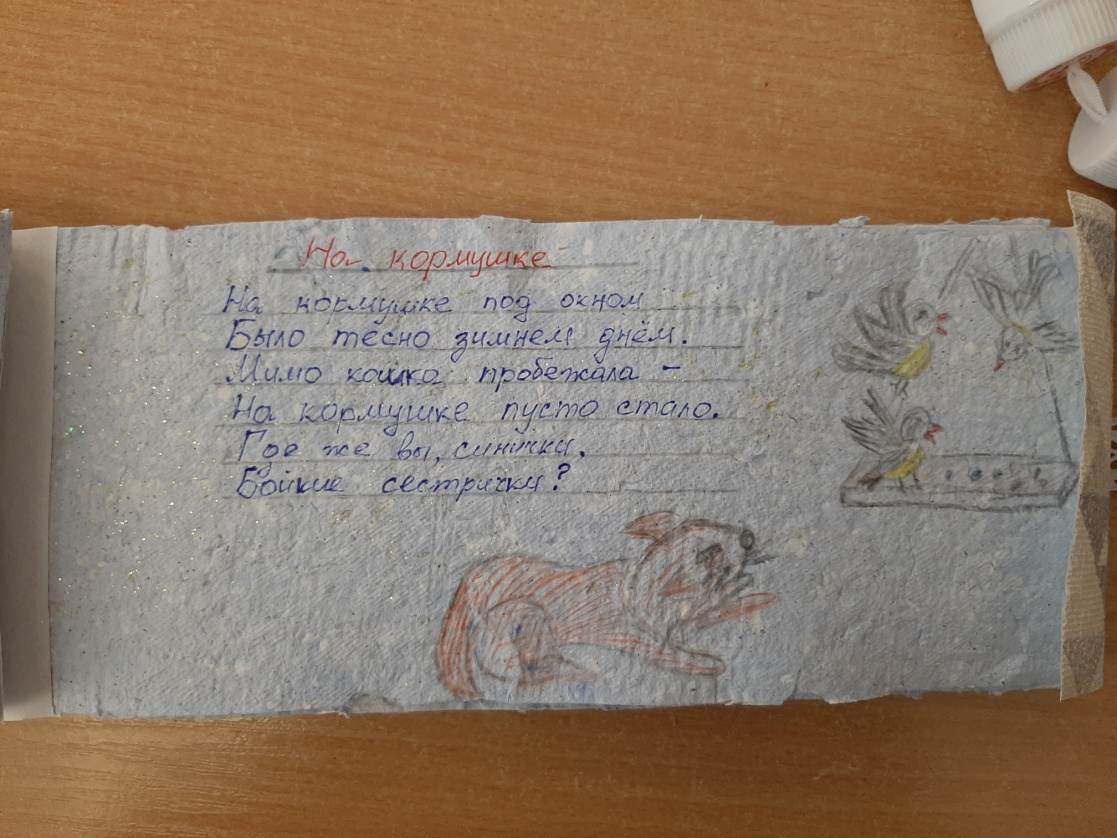 На кормушке
На кормушке под окном
Было тесно зимнем днём.
Мимо кошка пробежала –
На кормушке пусто стало.
Где же вы, синички,
Бойкие сестрички?